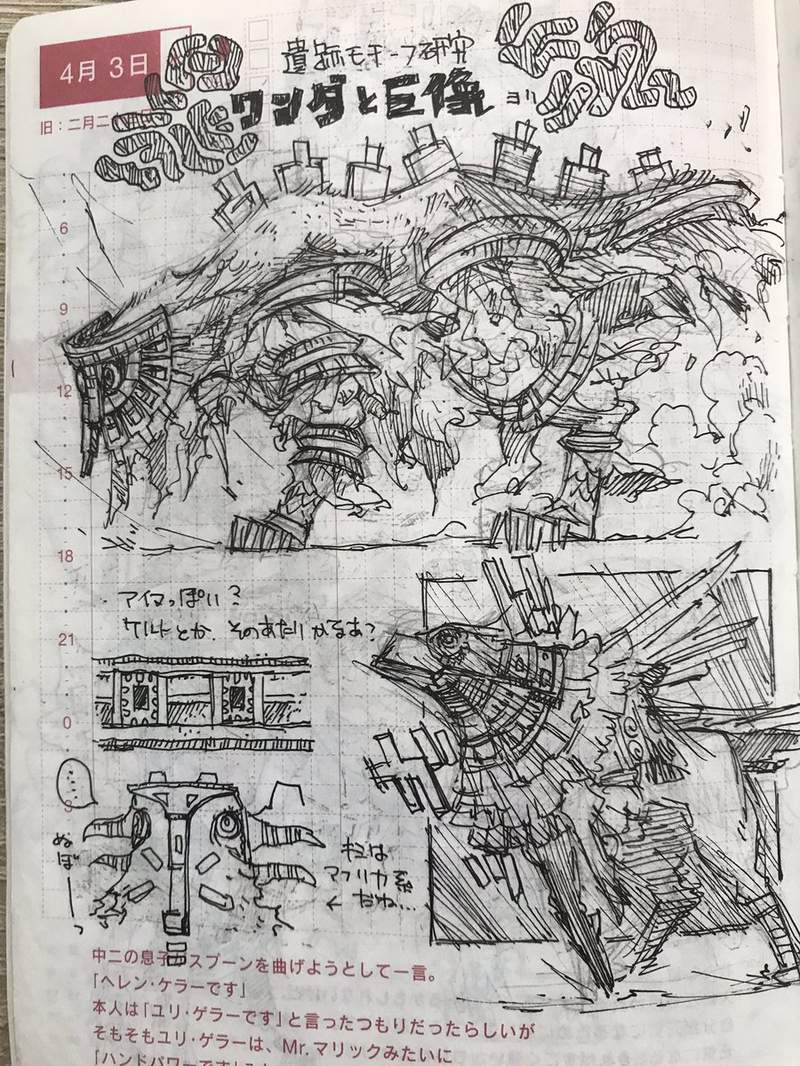 4月 3日
旧：二月二
遺跡モチーフ研究
ワンダと巨像 ヨリ
6
9
12
15
18
21
0
アイヌっぽい？
ケルトとか、そのあたりかなあ？
……
ぬぼーっ
キミは
アフリカ系
だね…
中二の息子 スプーンを曲げようとして一言。
「ヘレン・ケラーです」
本人は「ユリ・ゲラーです」と言ったつもりだったらしいが
そもそもユリ・ゲラーは、Mr.マリックみたいに
「ハンドパワーです」